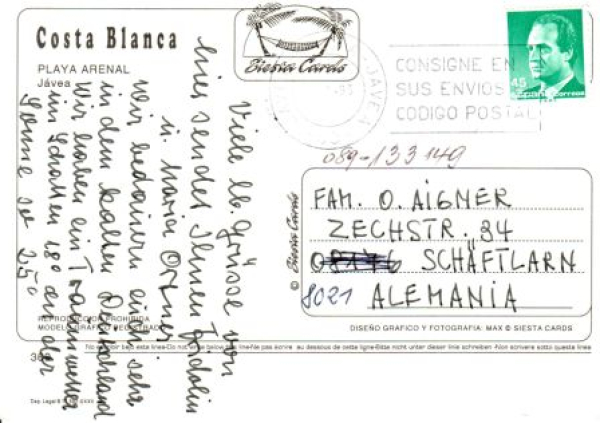 Costa Blanca
PLAYA ARENAL
Jávea
Siesta Cards
JAVEA
CONSIGNE EN
SUS ENVIOS
CODIGO POSTAL
45
España correos
089-133149
Viele lb. Grüsse von
hier sendet Ihnen Fridolin
u. Maria Ortner.
Wir bedauern Sie sehr
in dem kalten Deutschland
Wir haben ein Traumwetter
im Schatten 18° an der
Sonne so 25°
© Siesta Cards
FAM. O. AIGNER
ZECHSTR. 34
SCHÄFTLARN
8021 ALEMANIA
REPRODUCCION PROHIBIDA
MODELO GRAFICO REGISTRADO
DISEÑO GRAFICO Y FOTOGRAFIA: MAX © SIESTA CARDS
No escribir bajo esta linea-Do not write below this line-Ne pas écrire au dessous de cette ligne-Bitte nicht unter dieser linie schreiben-Non scrivere sotto questa linea
Dep. Legal B.